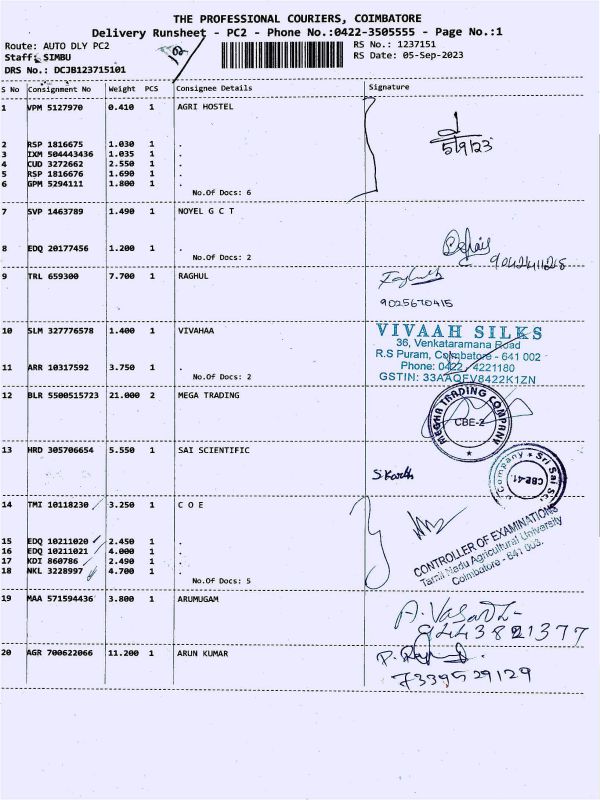 THE PROFESSIONAL COURIERS, COIMBATORE
Delivery Runsheet - PC2 - Phone No.:0422-3505555 - Page No.:1
Route: AUTO DLY PC2 RS No.: 1237151
Staff: SIMBU RS Date: 05-Sep-2023
DRS No.: DCJB123715101
S No Consignment No Weight PCS Consignee Details Signature
1 VPM 5127970 0.410 1 AGRI HOSTEL
5/9/23
2 RSP 1816675 1.030 1 .
3 IXM 504443436 1.035 1 .
4 CUD 3272662 2.550 1 .
5 RSP 1816676 1.690 1 .
6 GPM 5294111 1.800 1 .
No.Of Docs: 6
7 SVP 1463789 1.490 1 NOYEL G C T
8 EDQ 20177456 1.200 1 .
No.Of Docs: 2
9 TRL 659300 7.700 1 RAGHUL
9025670415
10 SLM 327776578 1.400 1 VIVAHAA
VIVAAH SILKS
36, Venkataramana Road
R.S Puram, Coimbatore - 641 002
Phone: 0422 - 4221180
GSTIN: 33AAQFV8422K1ZN
11 ARR 10317592 3.750 1 .
No.Of Docs: 2
12 BLR 5500515723 21.000 2 MEGA TRADING
MEGHA TRADING COMPANY
CBE-2
13 HRD 305706654 5.550 1 SAI SCIENTIFIC
S.Karth
Company * Sri Sai Sci
CBE-41.
14 TMI 10118230 3.250 1 C O E
CONTROLLER OF EXAMINATIONS
Tamil Nadu Agricultural University
Coimbatore - 641 003.
15 EDQ 10211020 2.450 1 .
16 EDQ 10211021 4.000 1 .
17 KDI 860786 2.490 1 .
18 NKL 3228997 4.700 1 .
No.Of Docs: 5
19 MAA 571594436 3.800 1 ARUMUGAM
9443821377
20 AGR 700622066 11.200 1 ARUN KUMAR
7339529129